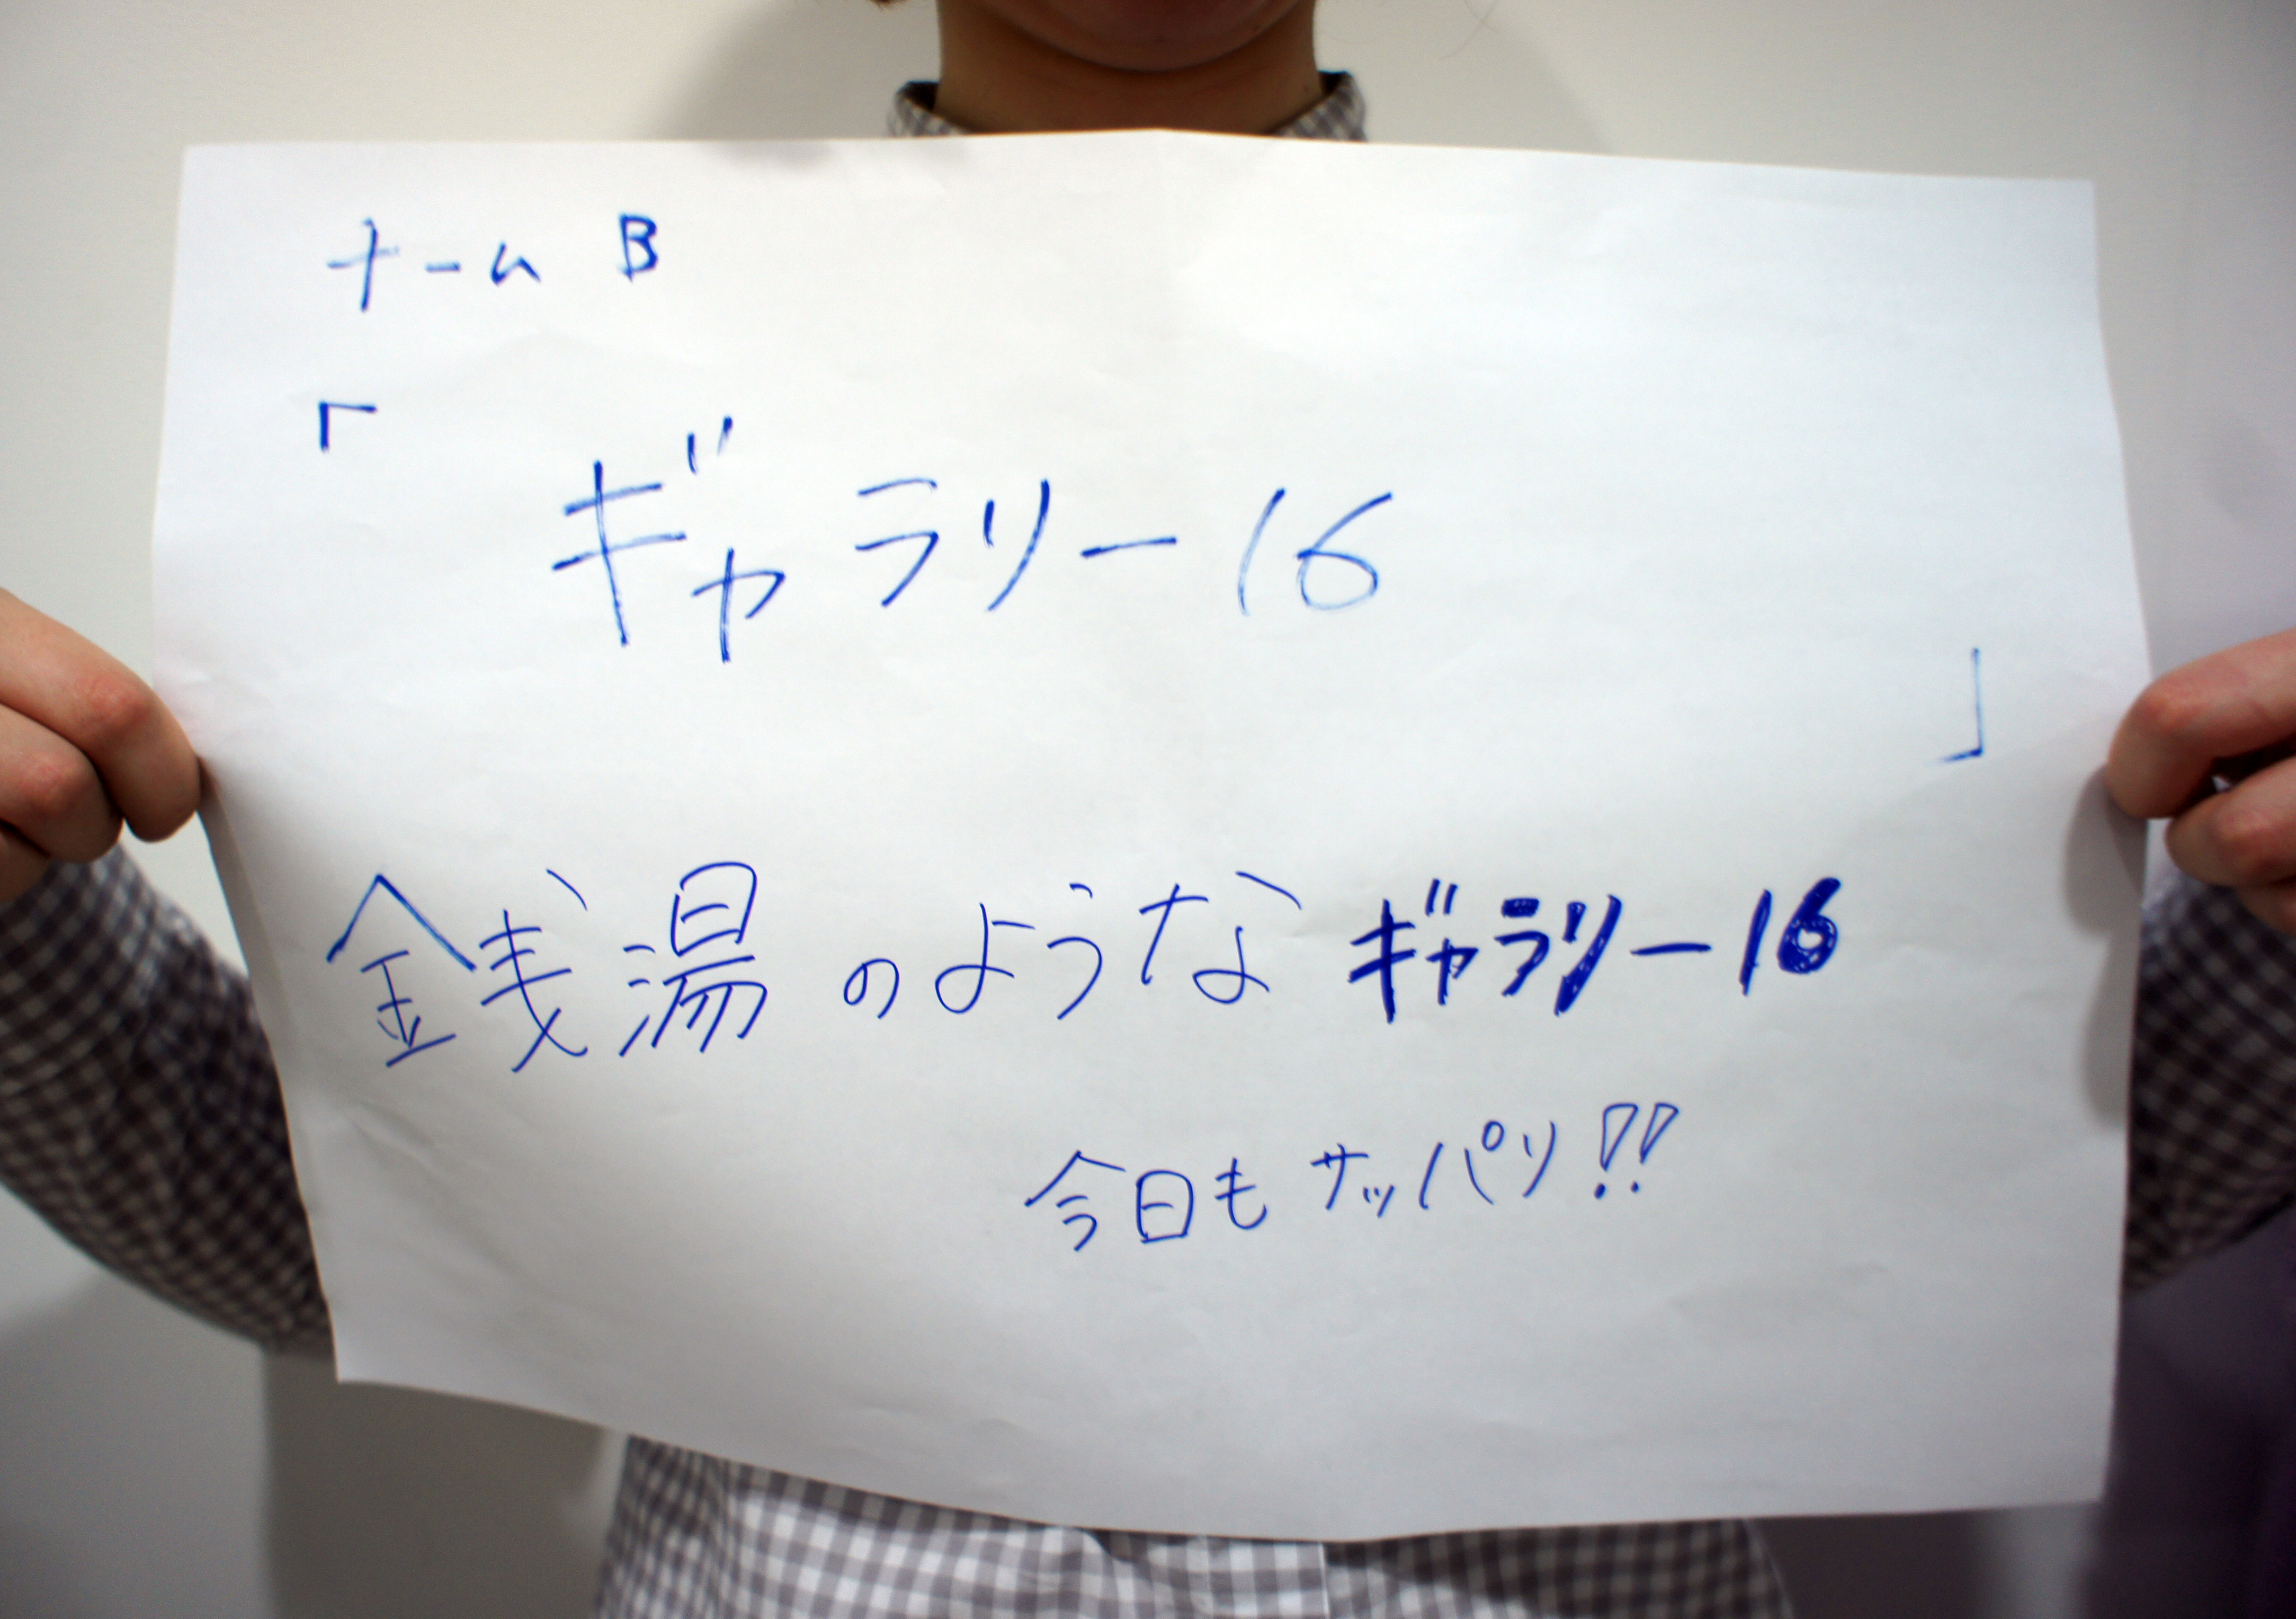 チーム B
「
ギャラリー16
」
銭湯のような ギャラリー16
今日も サッパリ!!